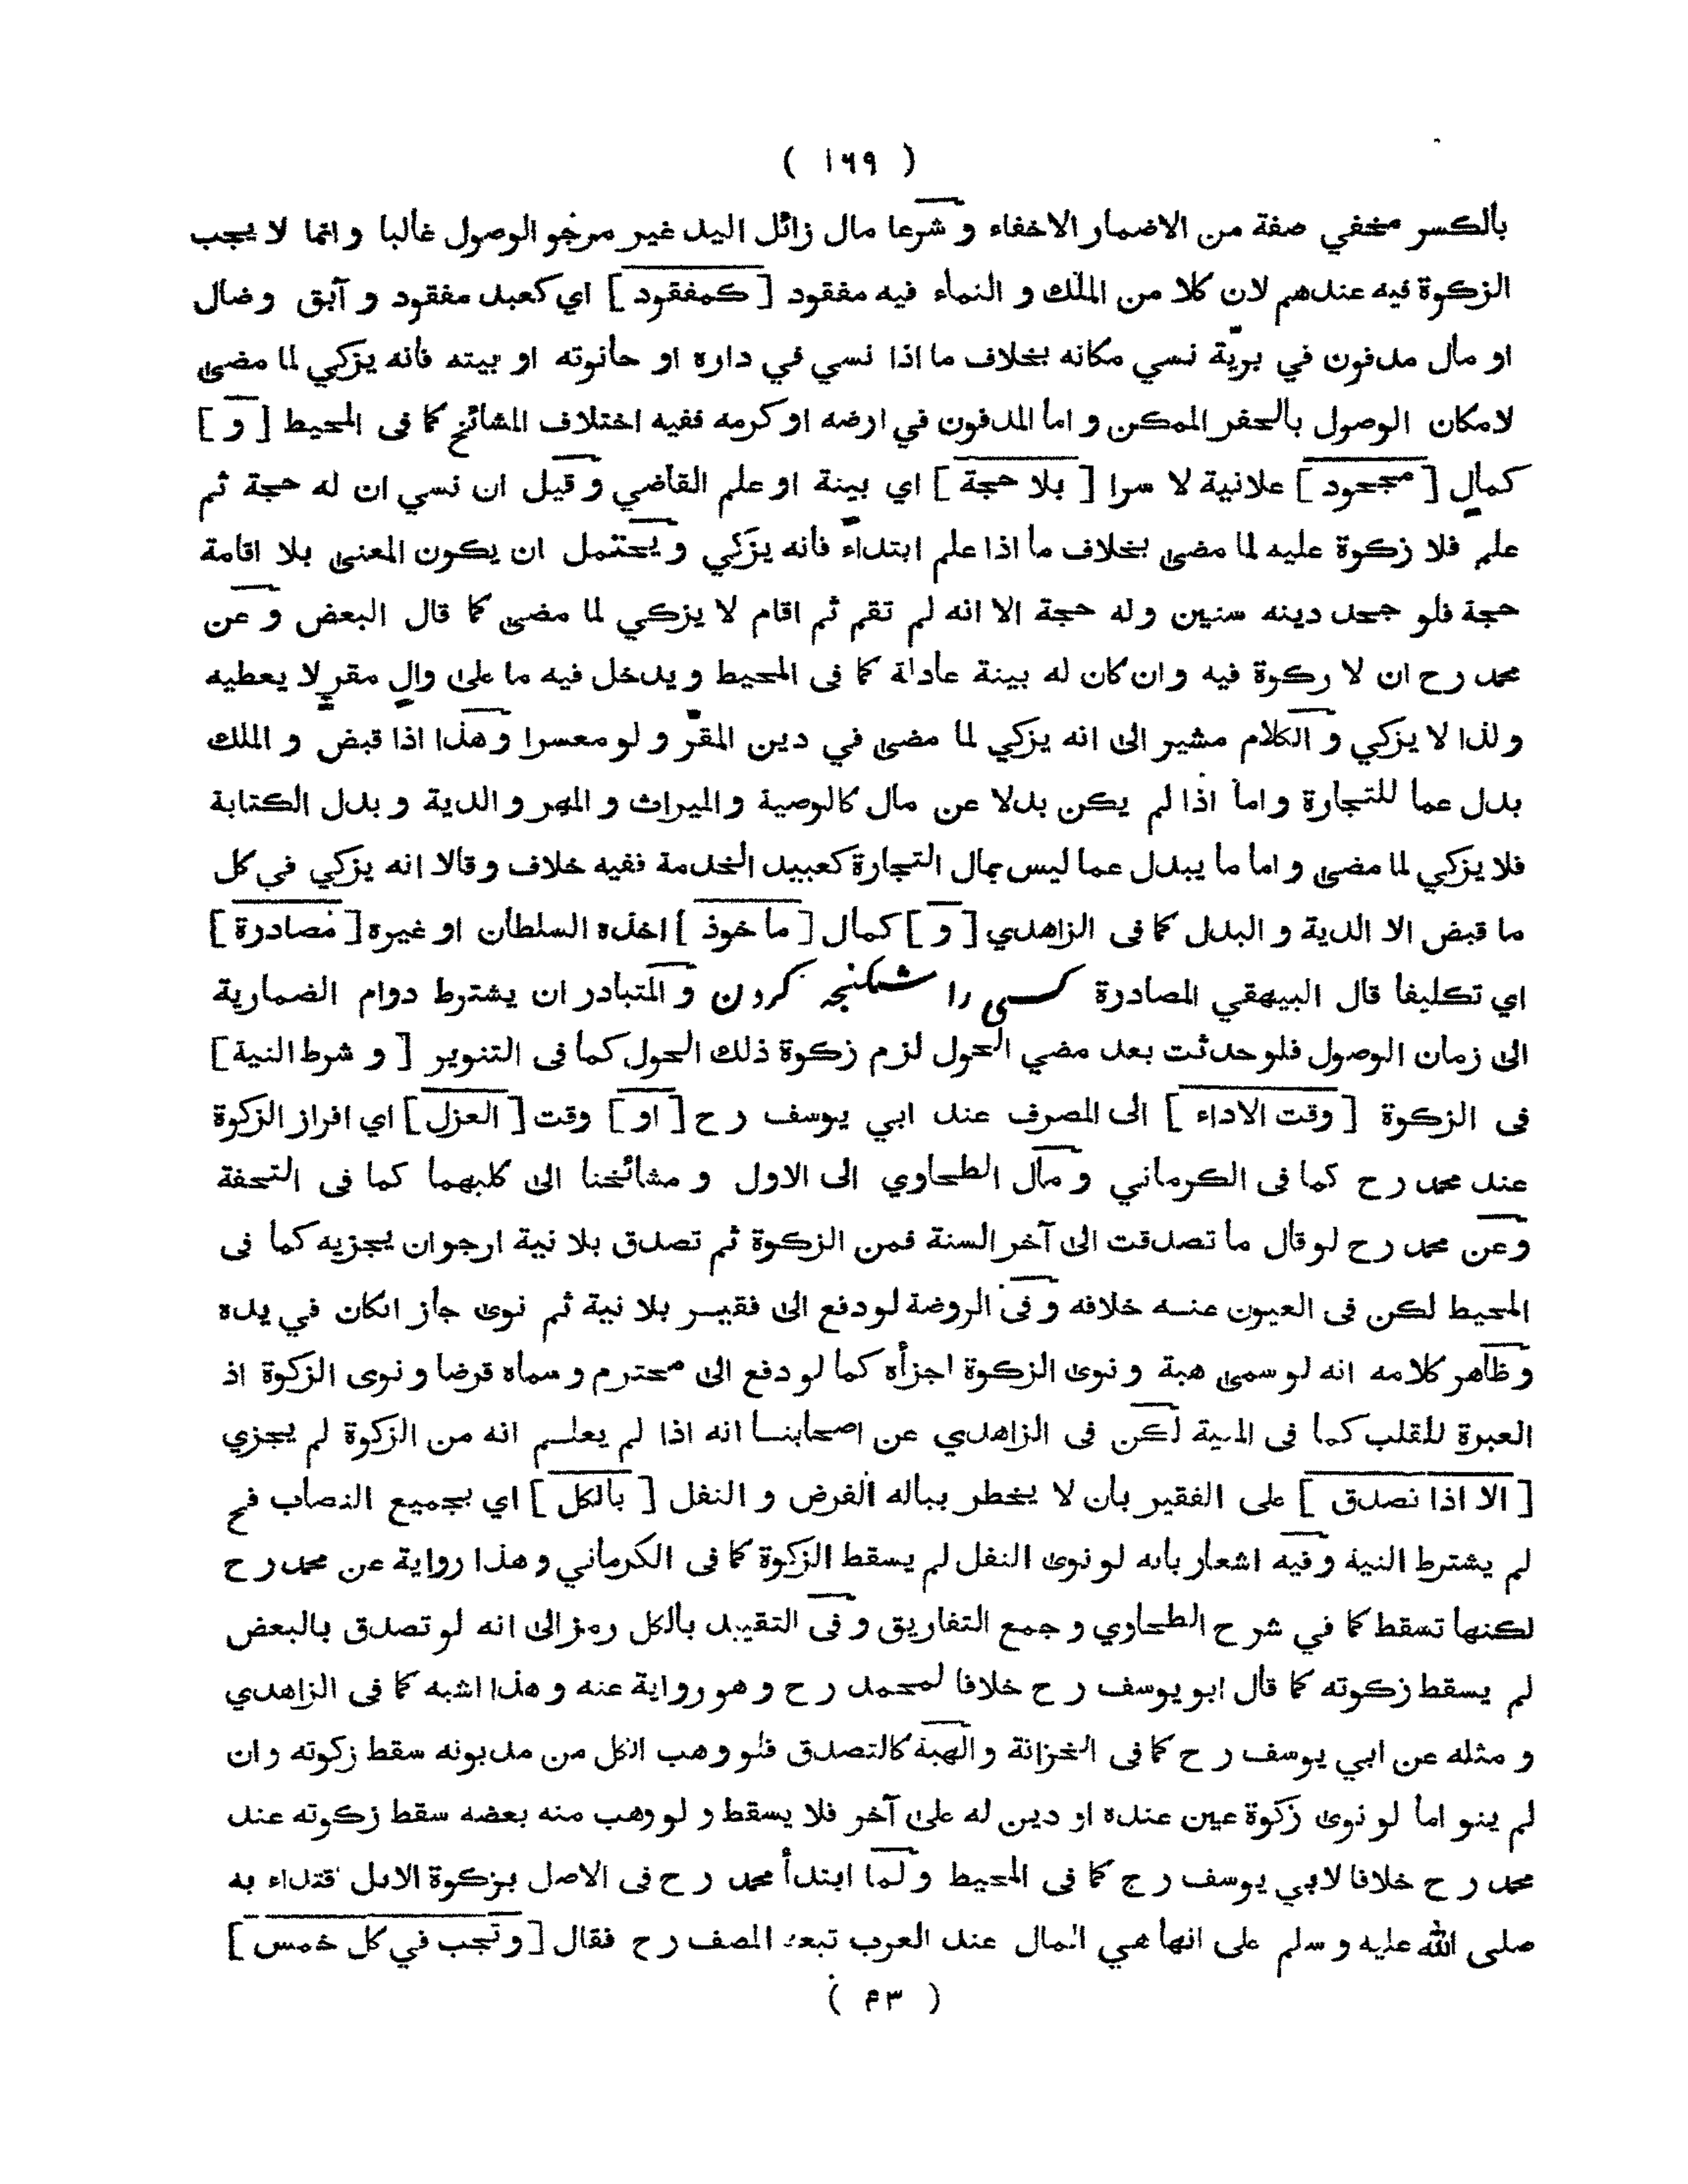 ( ١٦٩ )
بالكسر مخفي صفة من الاضمار الاخفاء و شرعا مال زائل اليد غير مرجو الوصول غالبا و انما لا يجب
الزكوة فيه عندهم لان كلا من الملك و النماء فيه مفقود [ كمفقود ] اي كعبد مفقود و آبق و ضال
او مال مدفون في بريّة نسي مكانه بخلاف ما اذا نسي في داره او حانوته او بيته فانه يزكي لما مضى
لامكان الوصول بالحفر الممكن و اما المدفون في ارضه او كرمه ففيه اختلاف المشائخ كما فى المحيط [ و ]
كمالٍ [ مجحود ] علانية لا سرا [ بلا حجة ] اي بينة او علم القاضي و قيل ان نسي ان له حجة ثم
علم فلا زكوة عليه لما مضى بخلاف ما اذا علم ابتداءً فانه يزكي و يحتمل ان يكون المعنى بلا اقامة
حجة فلو جحد دينه سنين وله حجة الا انه لم تقم ثم اقام لا يزكي لما مضى كما قال البعض و عن
محمد رح ان لا ركوة فيه و ان كان له بينة عادلة كما فى المحيط و يدخل فيه ما على والٍ مقرٍ لا يعطيه
ولذا لا يزكي و الكلام مشير الى انه يزكي لما مضى في دين المقرّ و لو معسرا و هذا اذا قبض و الملك
بدل عما للتجارة و اما اذا لم يكن بدلا عن مال كالوصية و الميراث و المهر و الدية و بدل الكتابة
فلا يزكي لما مضى و اما ما يبدل عما ليس بمال التجارة كعبيد الخدمة ففيه خلاف و قالا انه يزكي في كل
ما قبض الا الدية و البدل كما فى الزاهدي [ و ] كمال [ ما خوذ ] اخذه السلطان او غيره [ مصادرة ]
اي تكليفا قال البيهقي المصادرة كسى را شكنجه كردن و المتبادر ان يشترط دوام الضمارية
الى زمان الوصول فلو حدثت بعد مضي الحول لزم زكوة ذلك الحول كما فى التنوير [ و شرط النية ]
فى الزكوة [ وقت الاداء ] الى المصرف عند ابي يوسف رح [ او ] وقت [ العزل ] اي افراز الزكوة
عند محمد رح كما فى الكرماني و مال الطحاوي الى الاول و مشائخنا الى كليهما كما فى التحفة
وعن محمد رح لو قال ما تصدقت الى آخر السنة فمن الزكوة ثم تصدق بلا نية ارجو ان يجزيه كما فى
المحيط لكن فى العيون عنه خلافه و فى الروضة لو دفع الى فقير بلا نية ثم نوى جاز انكان في يده
و ظاهر كلامه انه لو سمى هبة و نوى الزكوة اجزأه كما لو دفع الى محترم و سماه قرضا و نوى الزكوة اذ
العبرة للقلب كما فى لكن فى الزاهدي عن اصحابنا انه اذا لم يعلم انه من الزكوة لم يجزي
[ الا اذا تصدق ] على الفقير بان لا يخطر بباله الفرض و النفل [ بالكل ] اي بجميع النصاب فح
لم يشترط النية و فيه اشعار بانه لو نوى النفل لم يسقط الزكوة كما فى الكرماني و هذا رواية عن محمد رح
لكنها تسقط كما في شرح الطحاوي و جمع التفاريق و فى التقييد بالكل رمز الى انه لو تصدق بالبعض
لم يسقط زكوته كما قال ابو يوسف رح خلافا لمحمد رح و هو رواية عنه و هذا اشبه كما فى الزاهدي
و مثله عن ابي يوسف رح كما فى الخزانة و الهبة كالتصدق فلو وهب الكل من مديونه سقط زكوته و ان
لم ينو اما لو نوى زكوة عين عنده او دين له على آخر فلا يسقط و لو وهب منه بعضه سقط زكوته عند
محمد رح خلافا لابي يوسف رح كما فى المحيط و لما ابتدأ محمد رح فى الاصل بزكوة الابل اقتداء به
صلى الله عليه و سلم على انها هي المال عند العرب تبعه المصف رح فقال [ و تجب في كل خمس ]
( ٤٣ )